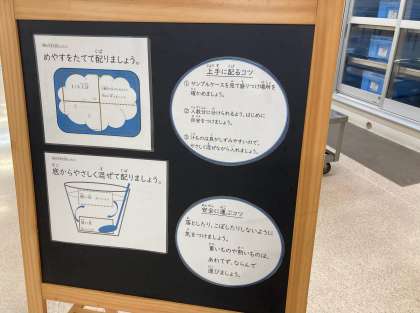 めやすをたてて配りましょう。
底からやさしく混ぜて配りましょう。
上手に配るコツ
① サンプルケースを見て盛りつけ場所を
確かめましょう。
② 人数分に分けられるよう、はじめに
目安をつけましょう。
③ 汁ものは具がしずみやすいので、
やさしく混ぜながら入れましょう。
安全に運ぶコツ
落としたり、こぼしたりしないように
気をつけましょう。
重いものや熱いものは、
あわてず、ならんで
運びましょう。